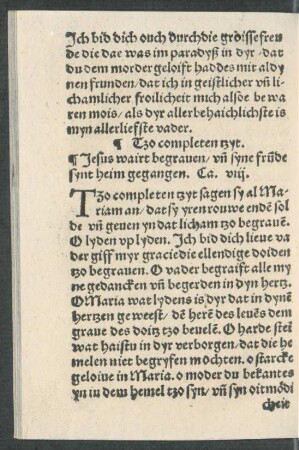 Ich bid dich ouch durch die gröisse freu
de die dae was im paradyß in dyr / dat
du dem morder geloift haddes mit al dy
nen frunden / dat ich in geistlicher vn̄ li
chamlicher froilicheit mich alsōe be wa
ren mois / als dyr allerbehaichlichste is
myn allerliefste vader.
¶ Tzo completen tzyt.
¶ Jesus wairt begrauen / vn̄ syne frūde
synt heim gegangen. Ca. viij.
Tzo completen tzyt sagen sy al Ma-
riam an / dat sy yren rouwe endē sol
de vn̄ geuen yn dat licham tzo begrauē.
O lyden vp lyden. Ich bid dich lieue va
der giff myr gracie die ellendige doiden
tzo begrauen. O vader begraift alle my
ne gedancken vn̄ begerden in dyn hertz.
O Maria wat lydens is dyr dat in dynē
hertzen geweest / dē herē des leuēs dem
graue des doitz tzo beuelē. O harde stei
wat haistu in dyr verborgen / dat die he
melen niet begryfen mochten. o starcke
geloiue in Maria. o moder du bekantes
yn in dem hemel tzo syn / vn̄ syn oitmōdi
cheit